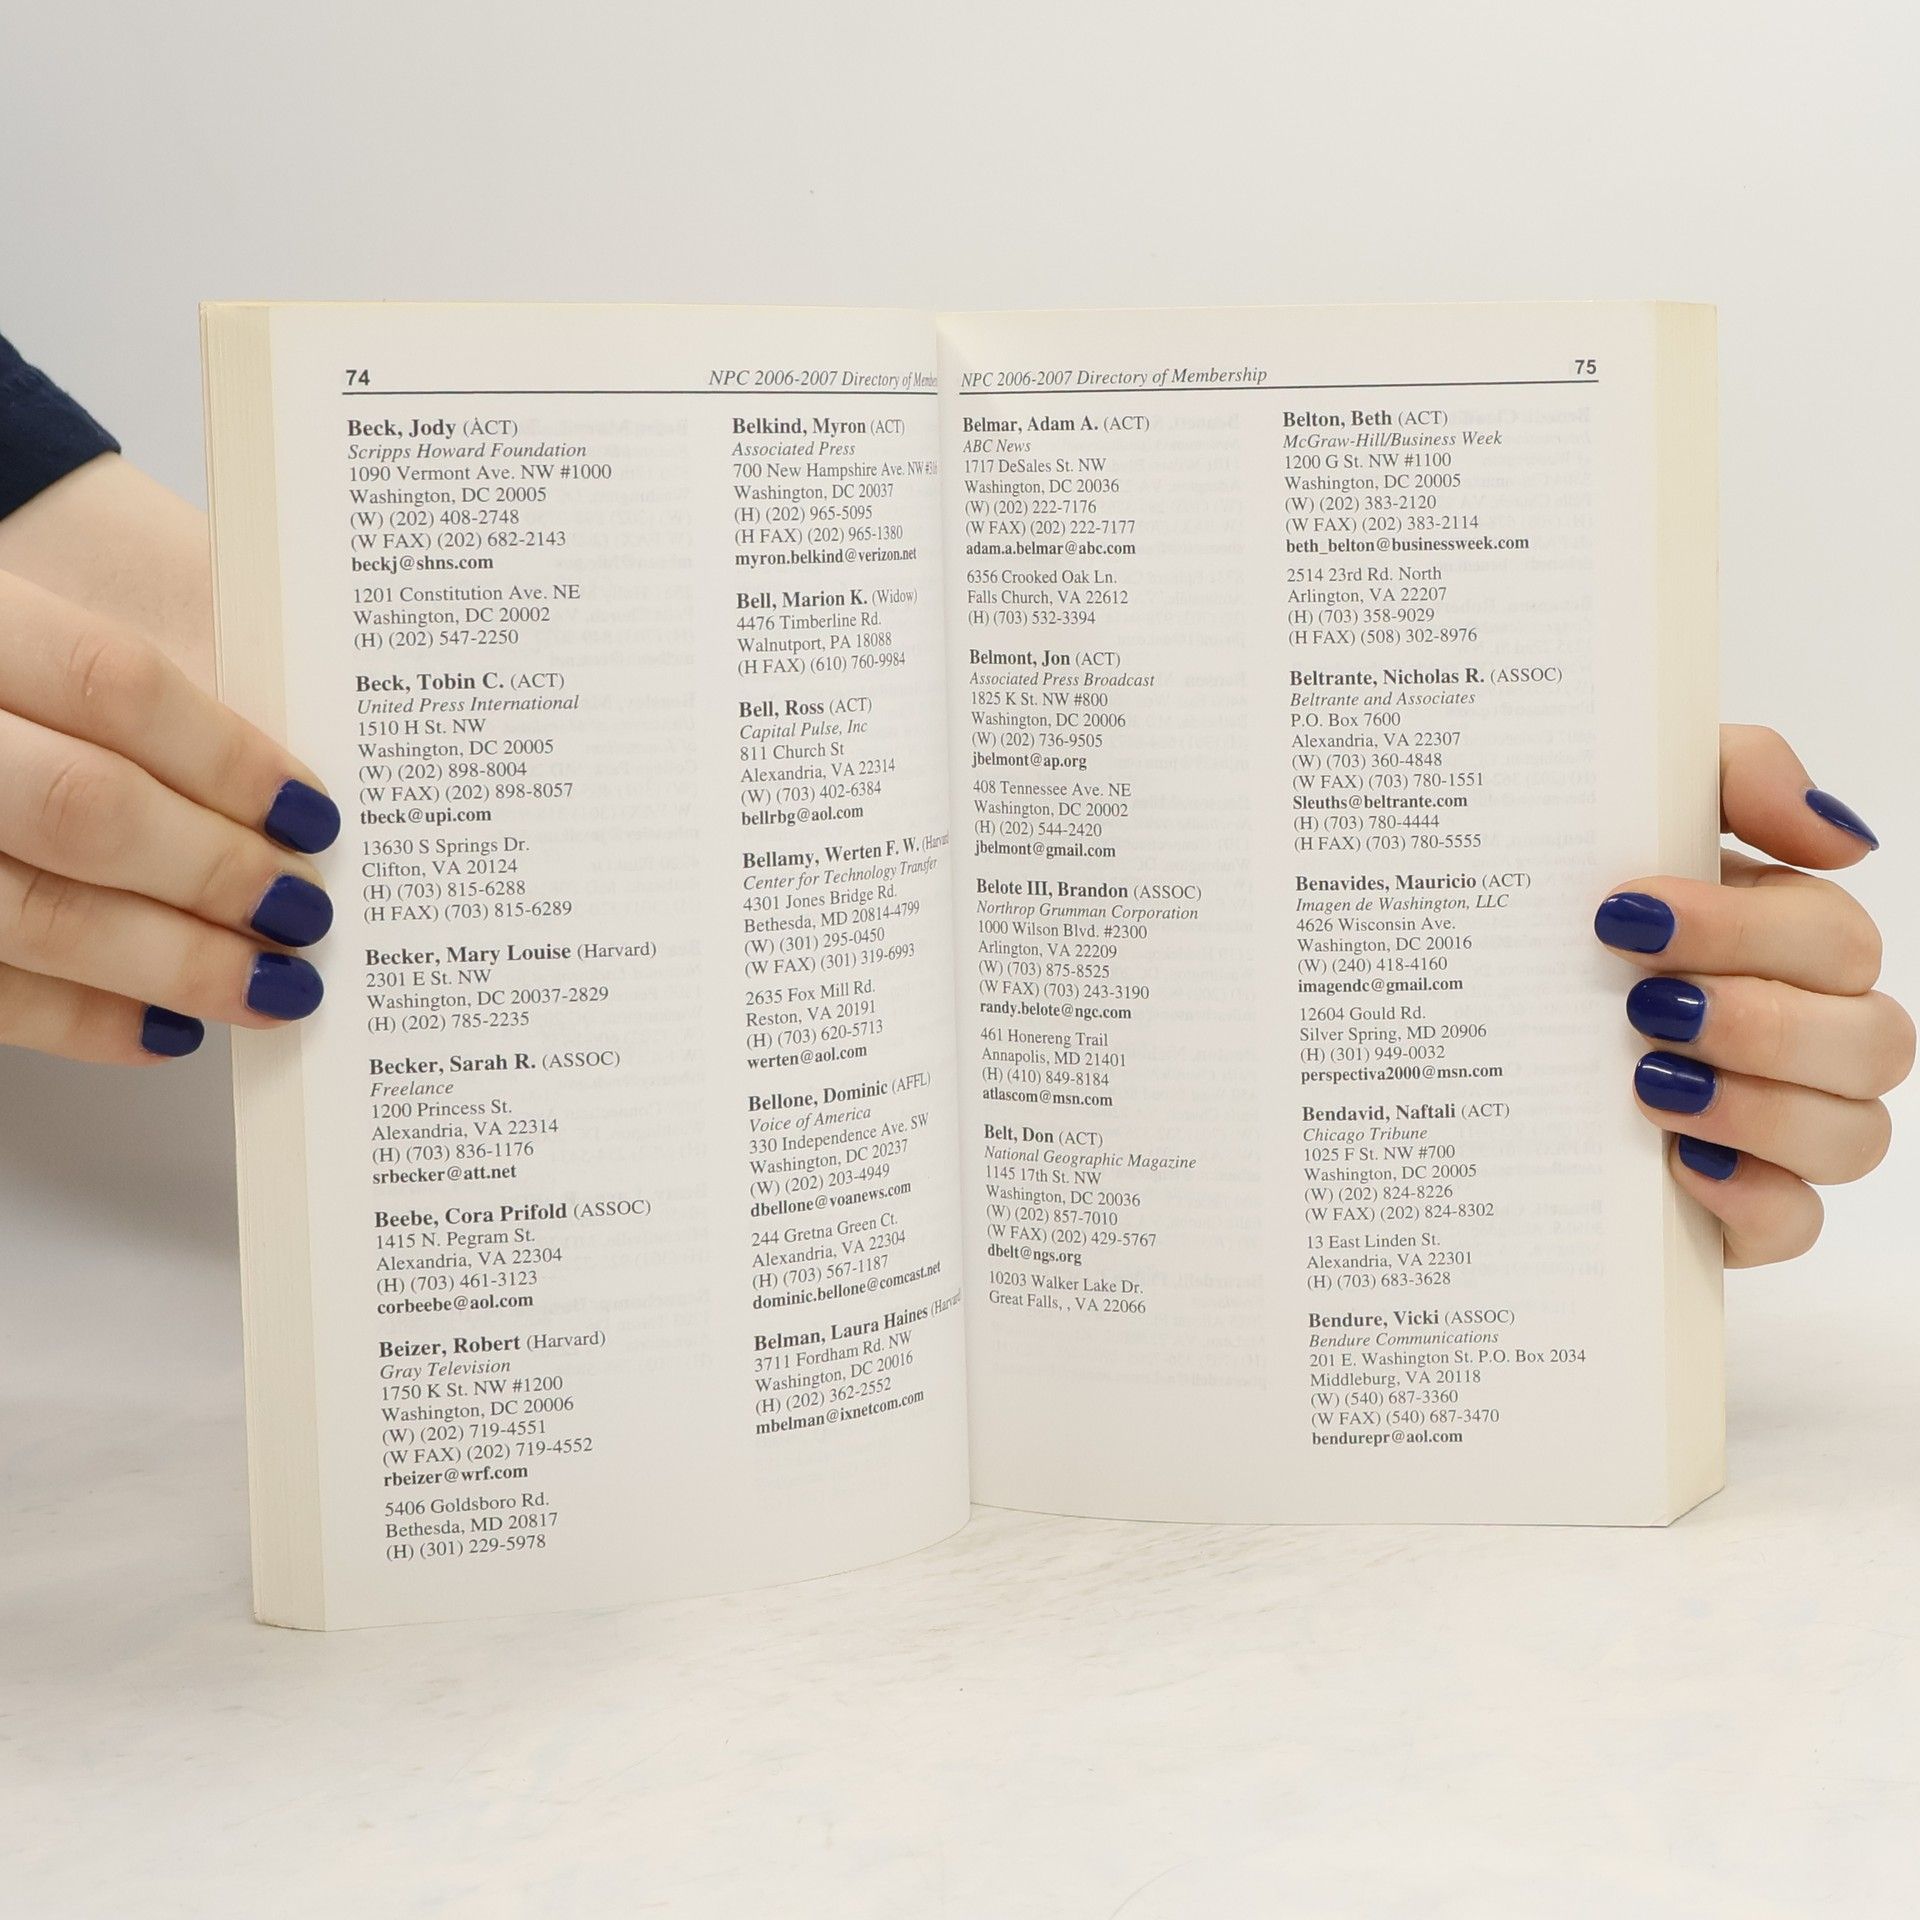 74
NPC 2006-2007 Directory of
Beck, Jody (ACT)
Scripps Howard Foundation
1090 Vermont Ave. NW #1000
Washington, DC 20005
(W) (202) 408-2748
(W FAX) (202) 682-2143
beckj@shns.com
1201 Constitution Ave. NE
Washington, DC 20002
(H) (202) 547-2250
Beck, Tobin C. (ACT)
United Press International
1510 H St. NW
Washington, DC 20005
(W) (202) 898-8004
(W FAX) (202) 898-8057
tbeck@upi.com
13630 S Springs Dr.
Clifton, VA 20124
(H) (703) 815-6288
(H FAX) (703) 815-6289
Becker, Mary Louise (Harvard)
2301 E St. NW
Washington, DC 20037-2829
(H) (202) 785-2235
Becker, Sarah R. (ASSOC)
Freelance
1200 Princess St.
Alexandria, VA 22314
(H) (703) 836-1176
srbecker@att.net
Beebe, Cora Prifold (ASSOC)
1415 N. Pegram St.
Alexandria, VA 22304
(H) (703) 461-3123
corbeebe@aol.com
Beizer, Robert (Harvard)
Gray Television
1750 K St. NW #1200
Washington, DC 20006
(W) (202) 719-4551
(W FAX) (202) 719-4552
rbeizer@wrf.com
5406 Goldsboro Rd.
Bethesda, MD 20817
(H) (301) 229-5978
Belkind, Myron (ACT)
Associated Press
700 New Hampshire Ave. NW
Washington, DC 20037
(H) (202) 965-5095
(H FAX) (202) 965-1380
myron.belkind@verizon.net
Bell, Marion K. (Widow)
4476 Timberline Rd.
Walnutport, PA 18088
(H FAX) (610) 760-9984
Bell, Ross (ACT)
Capital Pulse, Inc
811 Church St
Alexandria, VA 22314
(W) (703) 402-6384
bellrbg@aol.com
Bellamy, Werten F. W.
Center for Technology Transfer
4301 Jones Bridge Rd.
Bethesda, MD 20814-4799
(W) (301) 295-0450
(W FAX) (301) 319-6993
2635 Fox Mill Rd.
Reston, VA 20191
(H) (703) 620-5713
werten@aol.com
Bellone, Dominic (AFFL)
Voice of America
330 Independence Ave. SW
Washington, DC 20237
(W) (202) 203-4949
dbellone@voanews.com
244 Gretna Green Ct.
Alexandria, VA 22304
(H) (703) 567-1187
dominic.bellone@comcast.net
Belman, Laura Haines
3711 Fordham Rd. NW
Washington, DC 20016
(H) (202) 362-2552
mbelman@ixnetcom.com
NPC 2006-2007 Directory of Membership
75
Belmar, Adam A. (ACT)
ABC News
1717 DeSales St. NW
Washington, DC 20036
(W) (202) 222-7176
(W FAX) (202) 222-7177
adam.a.belmar@abc.com
6356 Crooked Oak Ln.
Falls Church, VA 22612
(H) (703) 532-3394
Belmont, Jon (ACT)
Associated Press Broadcast
1825 K St. NW #800
Washington, DC 20006
(W) (202) 736-9505
jbelmont@ap.org
408 Tennessee Ave. NE
Washington, DC 20002
(H) (202) 544-2420
jbelmont@gmail.com
Belote III, Brandon (ASSOC)
Northrop Grumman Corporation
1000 Wilson Blvd. #2300
Arlington, VA 22209
(W) (703) 875-8525
(W FAX) (703) 243-3190
randy.belote@ngc.com
461 Honereng Trail
Annapolis, MD 21401
(H) (410) 849-8184
atlascom@msn.com
Belt, Don (ACT)
National Geographic Magazine
1145 17th St. NW
Washington, DC 20036
(W) (202) 857-7010
(W FAX) (202) 429-5767
dbelt@ngs.org
10203 Walker Lake Dr.
Great Falls, , VA 22066
Belton, Beth (ACT)
McGraw-Hill/Business Week
1200 G St. NW #1100
Washington, DC 20005
(W) (202) 383-2120
(W FAX) (202) 383-2114
beth_belton@businessweek.com
2514 23rd Rd. North
Arlington, VA 22207
(H) (703) 358-9029
(H FAX) (508) 302-8976
Beltrante, Nicholas R. (ASSOC)
Beltrante and Associates
P.O. Box 7600
Alexandria, VA 22307
(W) (703) 360-4848
(W FAX) (703) 780-1551
Sleuths@beltrante.com
(H) (703) 780-4444
(H FAX) (703) 780-5555
Benavides, Mauricio (ACT)
Imagen de Washington, LLC
4626 Wisconsin Ave.
Washington, DC 20016
(W) (240) 418-4160
imagendc@gmail.com
12604 Gould Rd.
Silver Spring, MD 20906
(H) (301) 949-0032
perspectiva2000@msn.com
Bendavid, Naftali (ACT)
Chicago Tribune
1025 F St. NW #700
Washington, DC 20005
(W) (202) 824-8226
(W FAX) (202) 824-8302
13 East Linden St.
Alexandria, VA 22301
(H) (703) 683-3628
Bendure, Vicki (ASSOC)
Bendure Communications
201 E. Washington St. P.O. Box 2034
Middleburg, VA 20118
(W) (540) 687-3360
(W FAX) (540) 687-3470
bendurepr@aol.com